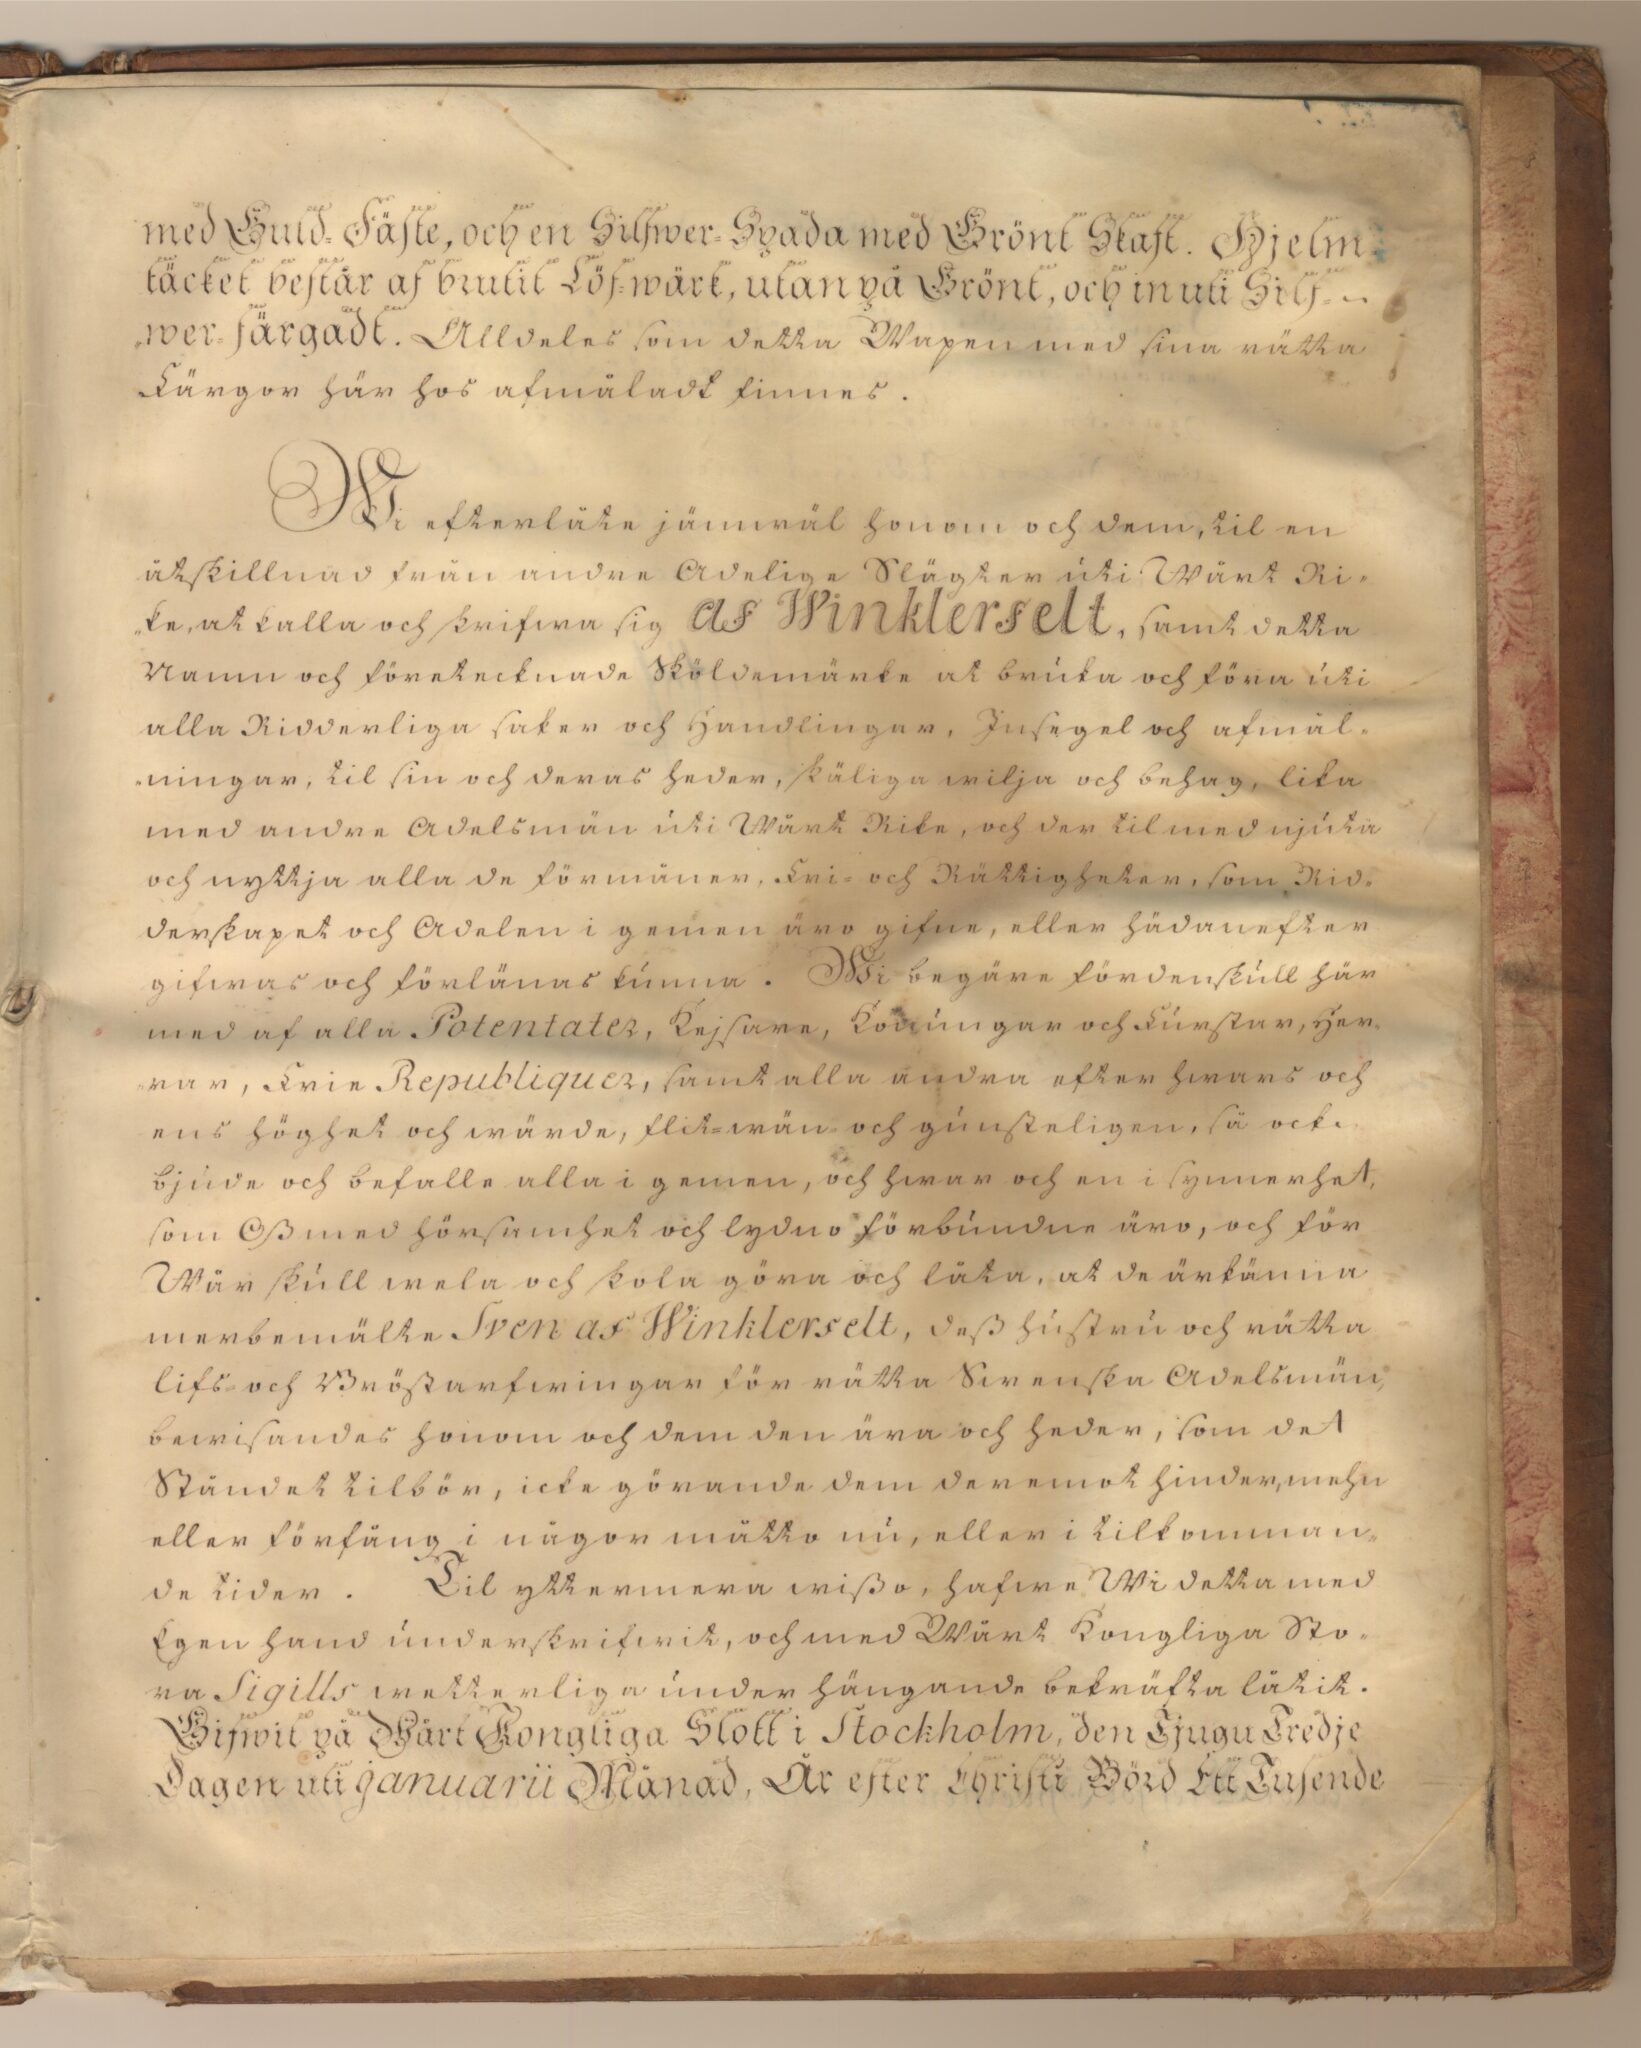 med Guld-Fäste, och en Silfwer-Spada med Grönt Skaft. Hjelm
täcket består af brutit Löf-wärk, utanpå Grönt, och inuti Silf-
wer-färgadt. Alldeles som detta Wapen med sina rätta
Färgor här hos afmåladt finnes.
Wi efterlåte jämwäl honom och dem, til en
åtskillnad från andre Adelige Slägter uti Wårt Ri-
ke, at kalla och skrifwa sig af Winklerfelt, samt detta
Namn och företecknade Sköldemärke at bruka och föra uti
alla Ridderliga saker och Handlingar, Insegel och afmål-
ningar, til sin och deras heder, skäliga wilja och behag, lika
med andre Adelsmän uti Wårt Rike, och der til med njuta
och nyttja alla de förmåner, Fri- och Rättigheter, som Rid-
derskapet och Adelen i gemen äro gifne, eller hädanefter
gifwas och förlänas kunna. Wi begäre fördenskull här
med af alla Potentater, Kejsare, Konungar och Furstar, Her-
rar, Frie Republiquer, samt alla andra efter hwars och
ens höghet och wärde, flit-wän- och gunsteligen, så ock
bjude och befalle alla i gemen, och hwar och en i synnerhet,
som Oß med hörsamhet och lydno förbundne äro, och för
Wår skull wela och skola göra och låta, at de ärkänna
merbemälte Sven af Winklerfelt, deß hustru och rätta
lifs- och Bröstarfwingar för rätta Swenska Adelsmän,
bewisandes honom och dem den ära och heder, som det
Ståndet tilbör, icke görande dem deremot hinder, mehn
eller förfång i någor måtto nu, eller i tilkomman-
de tider. Til yttermera wißo, hafwe Wi detta med
Egen hand underskrifwit, och med Wårt Kongliga Sto-
ra Sigills wetterliga underhängande bekräfta låtit.
Gifwit på Wårt Kongliga Slott i Stockholm, den Tjugu Tredje
Dagen uti Januarii Månad, År efter Christi Börd Ett Tusende